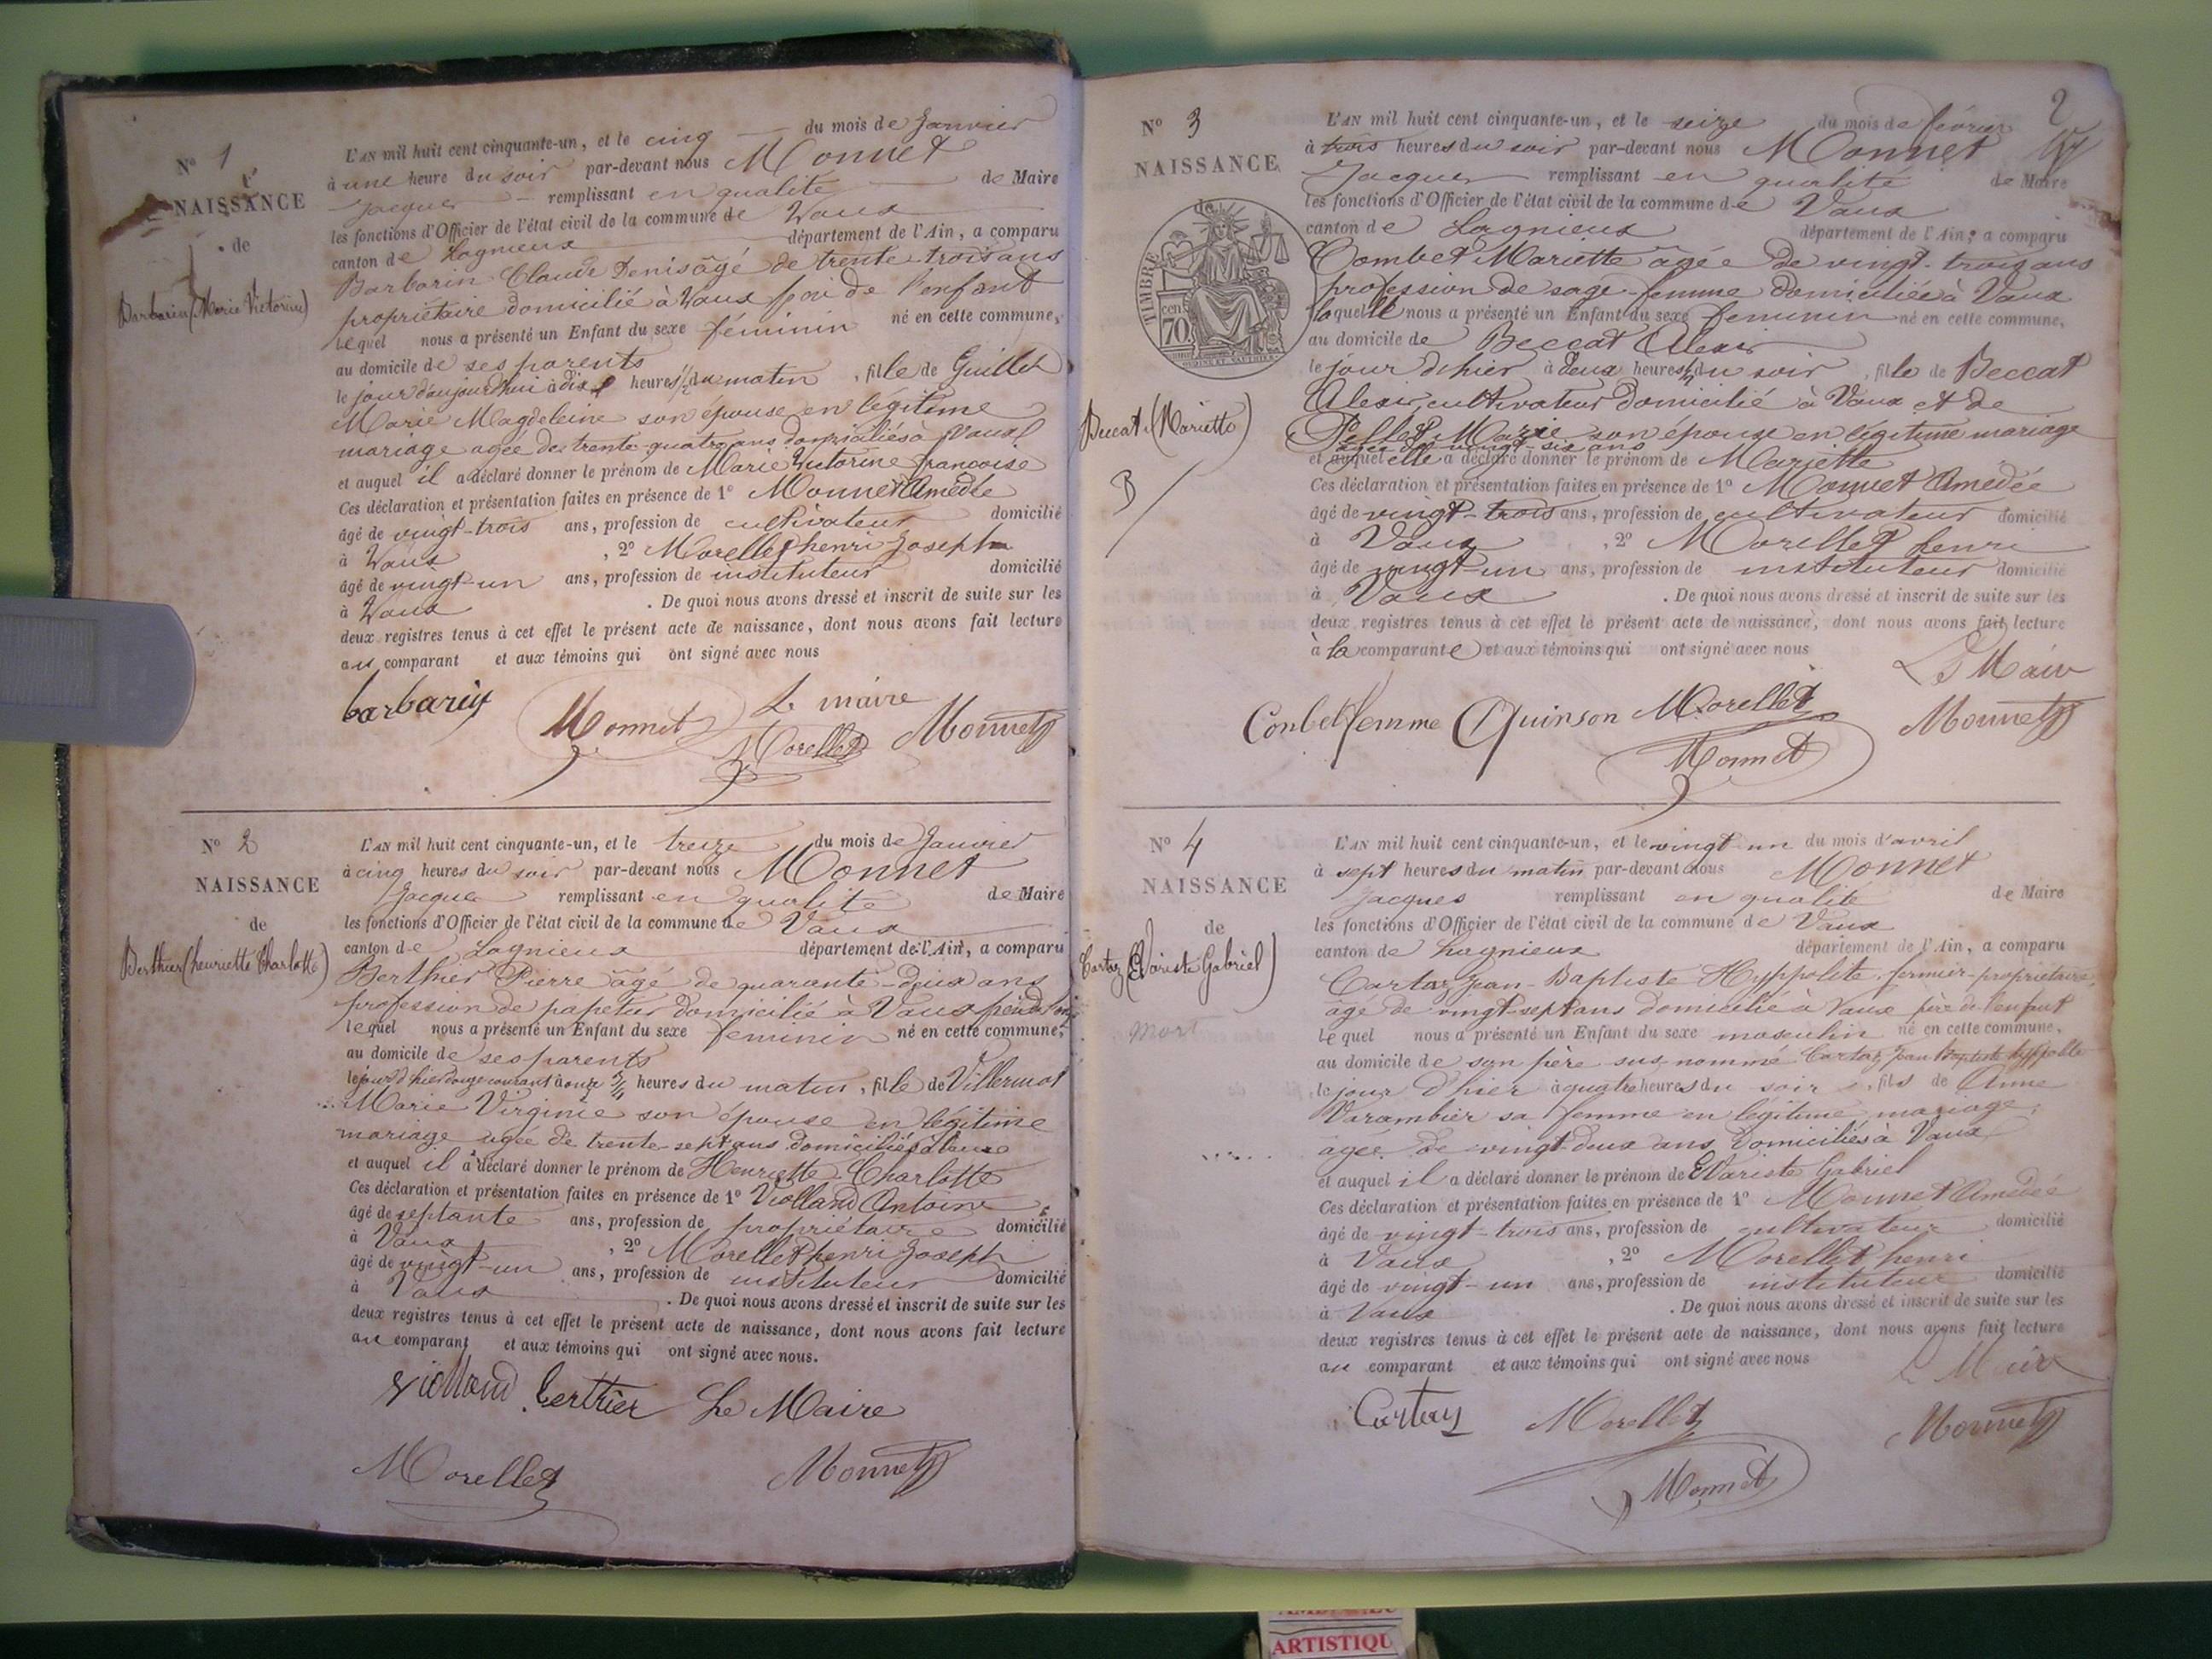 N° 1
NAISSANCE
de
Barbarin (Marie Victorine)
L'AN mil huit cent cinquante-un, et le cinq du mois de Janvier
à une heure du soir par-devant nous Monnet
Jacques remplissant en qualité de Maire
les fonctions d'Officier de l'état civil de la commune de Vaux
canton de Lagnieux département de l'Ain, a comparu
Barbarin Claude Denis âgé de trente-trois ans
propriétaire domicilié à Vaux père de l'enfant
lequel nous a présenté un Enfant du sexe féminin né en cette commune,
au domicile de ses parents
le jour d'aujourd'hui à dix heures 1/2 du matin, fille de Guillet
Marie Magdeleine son épouse en légitime
mariage agée de trente-quatre ans domiciliés à Vaux
et auquel il a déclaré donner le prénom de Marie Victorine françoise
Ces déclaration et présentation faites en présence de 1° Monnet Amédée
âgé de vingt-trois ans, profession de cultivateur domicilié
à Vaux , 2° Morellet henri Joseph
âgé de vingt-un ans, profession de instituteur domicilié
à Vaux . De quoi nous avons dressé et inscrit de suite sur les
deux registres tenus à cet effet le présent acte de naissance, dont nous avons fait lecture
au comparant et aux témoins qui ont signé avec nous
barbarin Monnet Le maire
Morellet Monnet
N° 2
NAISSANCE
de
Berthier (henriette Charlotte)
L'AN mil huit cent cinquante-un, et le treize du mois de Janvier
à cinq heures du soir par-devant nous Monnet
Jacques remplissant en qualité de Maire
les fonctions d'Officier de l'état civil de la commune de Vaux
canton de Lagnieux département de l'Ain, a comparu
Berthier Pierre âgé de quarante-deux ans
profession de papetier domicilié à Vaux père de
lequel nous a présenté un Enfant du sexe féminin né en cette commune,
au domicile de ses parents
le jour d'hier douze courant à onze 3/4 heures du matin, fille de Villermot
Marie Virginie son épouse en légitime
mariage agée de trente-sept ans domiciliés à Vaux
et auquel il a déclaré donner le prénom de Henriette Charlotte
Ces déclaration et présentation faites en présence de 1° Violland Antoine
âgé de septante ans, profession de propriétaire domicilié
à Vaux , 2° Morellet henri Joseph
âgé de vingt-un ans, profession de instituteur domicilié
à Vaux . De quoi nous avons dressé et inscrit de suite sur les
deux registres tenus à cet effet le présent acte de naissance, dont nous avons fait lecture
au comparant et aux témoins qui ont signé avec nous.
violland berthier Le Maire
Morellet Monnet
2
N° 3
NAISSANCE
de
TIMBRE
70 cen
Beccat (Mariette)
B
L'AN mil huit cent cinquante-un, et le seize du mois de février
à trois heures du soir par-devant nous Monnet
Jacques remplissant en qualité de Maire
les fonctions d'Officier de l'état civil de la commune de Vaux
canton de Lagnieux département de l'Ain, a comparu
Combet Mariette agée de vingt-trois ans
profession de sage-femme domiciliée à Vaux
laquelle nous a présenté un Enfant du sexe feminin né en cette commune,
au domicile de Beccat Alexis
le jour d'hier à deux heures 1/2 du soir, fille de Beccat
Alexis, cultivateur domicilié à Vaux et de
Pellet Marie son épouse en légitime mariage
agée de vingt-six ans
et auquel elle a déclaré donner le prénom de Mariette
Ces déclaration et présentation faites en présence de 1° Monnet Amédée
âgé de vingt-trois ans, profession de cultivateur domicilié
à Vaux , 2° Morellet henri
âgé de vingt-un ans, profession de instituteur domicilié
à Vaux . De quoi nous avons dressé et inscrit de suite sur les
deux registres tenus à cet effet le présent acte de naissance, dont nous avons fait lecture
à la comparante et aux témoins qui ont signé avec nous
Le Maire
Conbet femme Quinson Morellet Monnet
Monnet
N° 4
NAISSANCE
de
Cartaz (Evariste Gabriel)
Mort
L'AN mil huit cent cinquante-un, et le vingt-un du mois d'avril
à sept heures du matin par-devant nous Monnet
Jacques remplissant en qualité de Maire
les fonctions d'Officier de l'état civil de la commune de Vaux
canton de Lagnieux département de l'Ain, a comparu
Cartaz Jean-Baptiste Hyppolite, fermier-propriétaire,
âgé de vingt-sept ans domicilié à Vaux père de l'enfant
lequel nous a présenté un Enfant du sexe masculin né en cette commune,
au domicile de son père sus-nommé Cartaz Jean Baptiste hyppolite
le jour d'hier à quatre heures du soir, fils de Anne
Varambier sa femme en légitime mariage,
agée de vingt-deux ans, domiciliés à Vaux
et auquel il a déclaré donner le prénom de Evariste Gabriel
Ces déclaration et présentation faites en présence de 1° Monnet Amédée
âgé de vingt-trois ans, profession de cultivateur domicilié
à Vaux , 2° Morellet henri
âgé de vingt-un ans, profession de instituteur domicilié
à Vaux . De quoi nous avons dressé et inscrit de suite sur les
deux registres tenus à cet effet le présent acte de naissance, dont nous avons fait lecture
au comparant et aux témoins qui ont signé avec nous
Le Maire
Cartaz Morellet Monnet
Monnet
ARTISTIQU